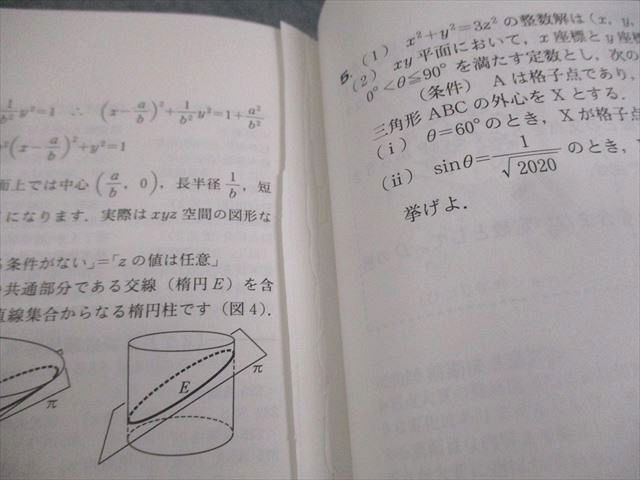 1/b² y²=1 ∴ (x−a/b)²+1/b² y²=1+a²/b²
b²(x−a/b)²+y²=1
面上では中心(a/b, 0), 長半径1/b, 短
になります. 実際はxyz空間の図形な
る条件がない」=「zの値は任意」
の共通部分である交線(楕円E)を含
直線集合からなる楕円柱です(図4).
π
E
π
5. (1) x²+y²=3z²の整数解は(x, y,
(2) xy平面において, x座標とy座標
0°<θ≦90°を満たす定数とし, 次の
(条件) Aは格子点であり,
三角形ABCの外心をXとする.
(i) θ=60°のとき, Xが格子点
(ii) sinθ=1/√2020 のとき,
挙げよ.